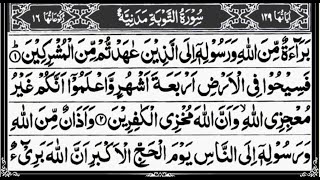 اٰیَاتُهَا ۱۲۹ سُوْرَةُ التَّوْبَةِ مَدَنِیَّةٌ رُكُوْعَاتُهَا ۱۶
بَرَآءَةٌ مِّنَ اللّٰهِ وَرَسُوْلِهٖۤ اِلَى الَّذِیْنَ عٰهَدْتُّمْ مِّنَ الْمُشْرِكِیْنَ ۱
فَسِیْحُوْا فِی الْاَرْضِ اَرْبَعَةَ اَشْهُرٍ وَّاعْلَمُوْۤا اَنَّكُمْ غَیْرُ
مُعْجِزِی اللّٰهِ وَاَنَّ اللّٰهَ مُخْزِی الْكٰفِرِیْنَ ۲ وَاَذَانٌ مِّنَ اللّٰهِ
وَرَسُوْلِهٖۤ اِلَى النَّاسِ یَوْمَ الْحَجِّ الْاَكْبَرِ اَنَّ اللّٰهَ بَرِیْٓءٌ